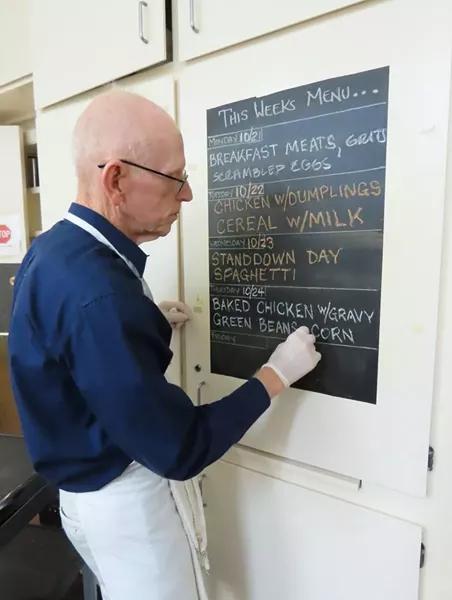 THIS WEEKS MENU...
MONDAY 10/21
BREAKFAST MEATS, GRITS
SCRAMBLED EGGS
TUESDAY 10/22
CHICKEN W/DUMPLINGS
CEREAL W/MILK
WEDNESDAY 10/23
STANDDOWN DAY
SPAGHETTI
THURSDAY 10/24
BAKED CHICKEN W/GRAVY
GREEN BEANS CORN
FRIDAY
STOP